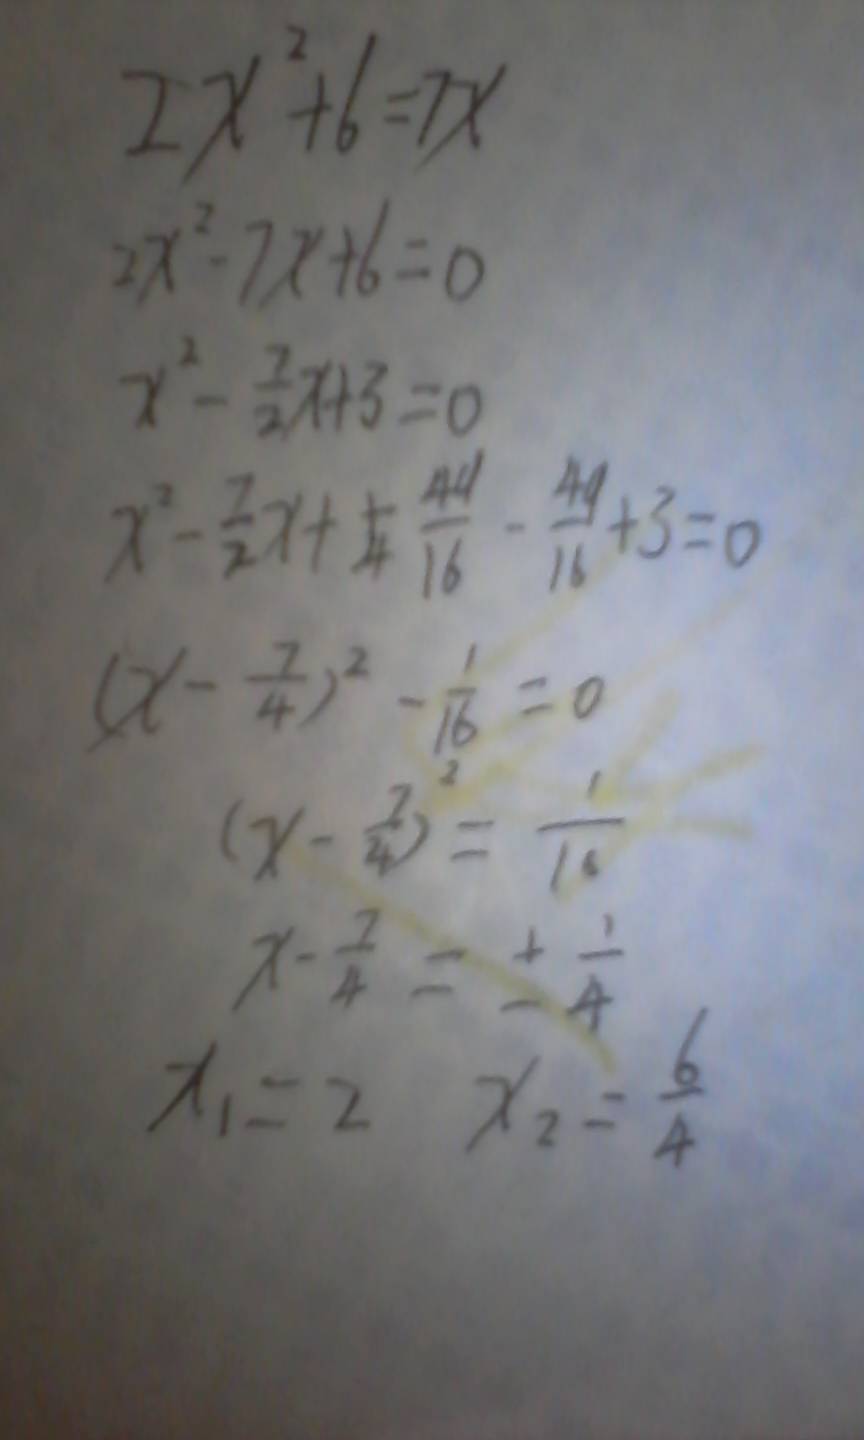 2x²+6=7x
2x²-7x+6=0
x²-7/2x+3=0
x²-7/2x+49/16-49/16+3=0
(x-7/4)²-1/16=0
(x-7/4)²=1/16
x-7/4=±1/4
x₁=2 x₂=6/4